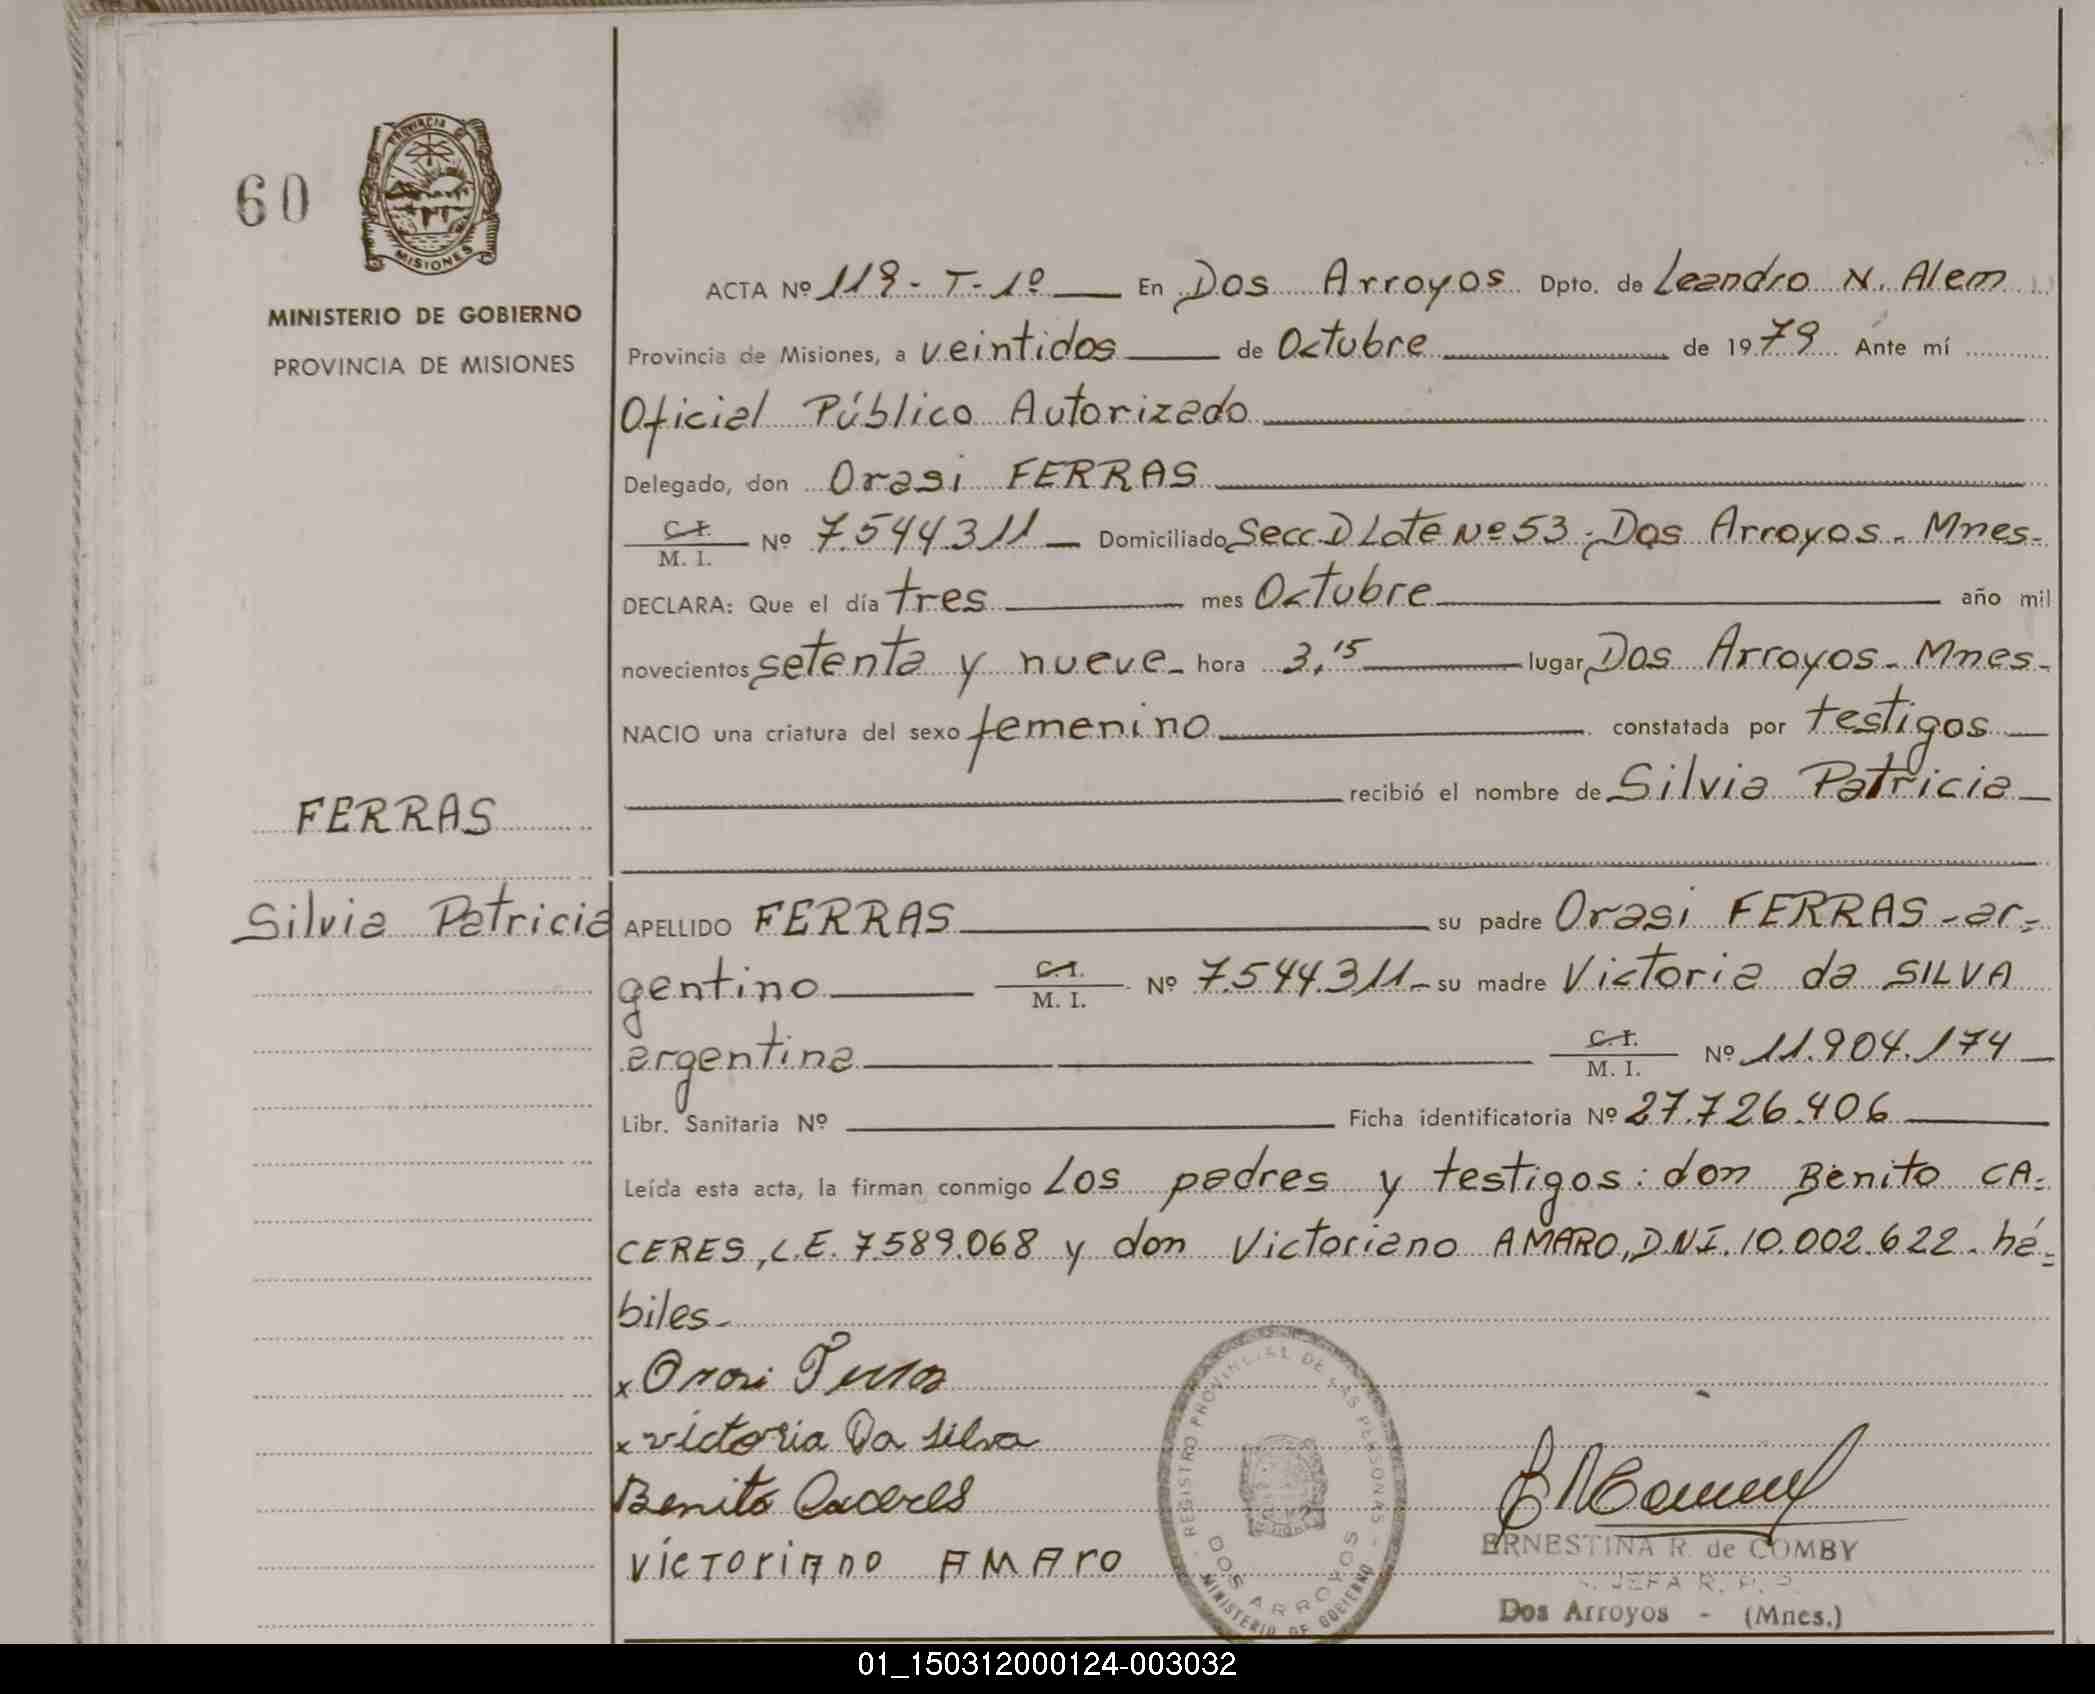 60
PROVINCIA
MISIONES
MINISTERIO DE GOBIERNO
PROVINCIA DE MISIONES
ACTA Nº 119 - T - 1º En Dos Arroyos Dpto. de Leandro N. Alem
Provincia de Misiones, a veintidos de Octubre de 1979 Ante mí
Oficial Público Autorizado
Delegado, don Orasi FERRAS
C.I.
M. I. Nº 7.544.311 Domiciliado Secc. D Lote Nº 53, Dos Arroyos - Mnes-
DECLARA: Que el día tres mes Octubre año mil
novecientos setenta y nueve - hora 3,15 lugar Dos Arroyos - Mnes-
NACIO una criatura del sexo femenino constatada por testigos
recibió el nombre de Silvia Patricia
FERRAS
Silvia Patricia
APELLIDO FERRAS su padre Orasi FERRAS - ar-
gentino C.I. M. I. Nº 7.544.311 - su madre Victoria da SILVA
argentina C.I. M. I. Nº 11.904.174
Libr. Sanitaria Nº Ficha identificatoria Nº 27.726.406
Leída esta acta, la firman conmigo Los padres y testigos: don Benito CA-
CERES, L.E. 7.589.068 y don Victoriano AMARO, D.N.I. 10.002.622 - há-
biles -
x Orasi Ferras
x victoria Da silva
Benito Caceres
VicTORiAno AMARO
REGISTRO PROVINCIAL DE LAS PERSONAS
DOS ARROYOS
MINISTERIO DE GOBIERNO
ERNESTINA R. de COMBY
JEFA R. P. P.
Dos Arroyos - (Mnes.)
01_150312000124-003032